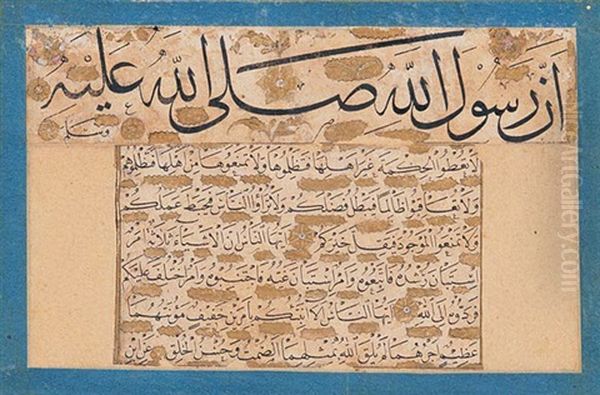 اَنَّ رَسُولَ اللّٰهِ صَلَى اللّٰهُ عَلَيْهِ
وسلم
لا تعطوا الحكمة غير اهلها فتظلموها ولا تمنعوها من اهلها فتظلموهم
ولا تعاقبوا ظالما فيبطل فضلكم ولا تراؤا الناس فيحبط عملكم
ولا تمنعوا الموجود فيقل خيركم ايها الناس ان الاشياء ثلاثة امر
استبان رشده فاتبعوه وامر استبان غيه فاجتنبوه وامر اختلف عليكم
فردوه الى الله ايها الناس الا انبئكم بامرين خفيف مؤنتهما
عظيم اجرهما لم يلق الله بمثلهما الصمت وحسن الخلق عن ابن